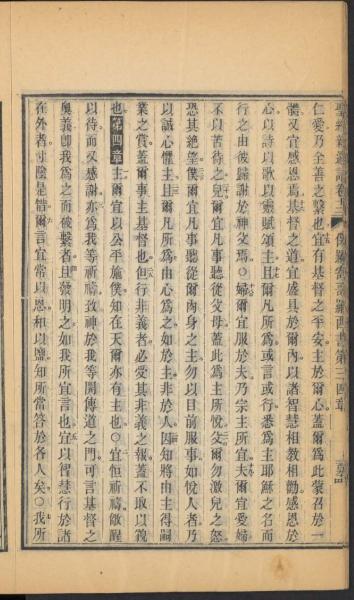 仁愛乃全善之繫也宜有基督之平安主於爾心蓋爾為此蒙召於一
體又宜感恩焉基督之道宜盛具於爾內以諸智慧相教相勸感恩於
心以詩以歌以靈賦頌主且爾凡所為或言或行悉為主耶穌之名而
行之由彼歸謝於神父焉○婦爾宜服於夫乃宗主所宜夫爾宜愛婦
不以苦待之兒爾宜凡事聽從父母蓋此為主所悅父爾勿激兒之怒
恐其絕望僕爾宜凡事聽從爾肉身之主勿以目前服事如悅人者乃
以誠心懼主且爾凡所為由心為之如於主非於人因知將由主得嗣
業之賞蓋爾事主基督也但行非義者必受其非義之報蓋不取以貌
也第四章主爾宜以公平施僕知在天爾亦有主也○宜恒祈禱儆醒
以待而又感謝亦為我等祈禱致神於我等開傳道之門可言基督之
奧義即我為之而被繫者且發明之如我所宜言也宜以智慧行於諸
在外者寸陰是惜爾言宜常以恩和以鹽知所當答於各人矣○我所